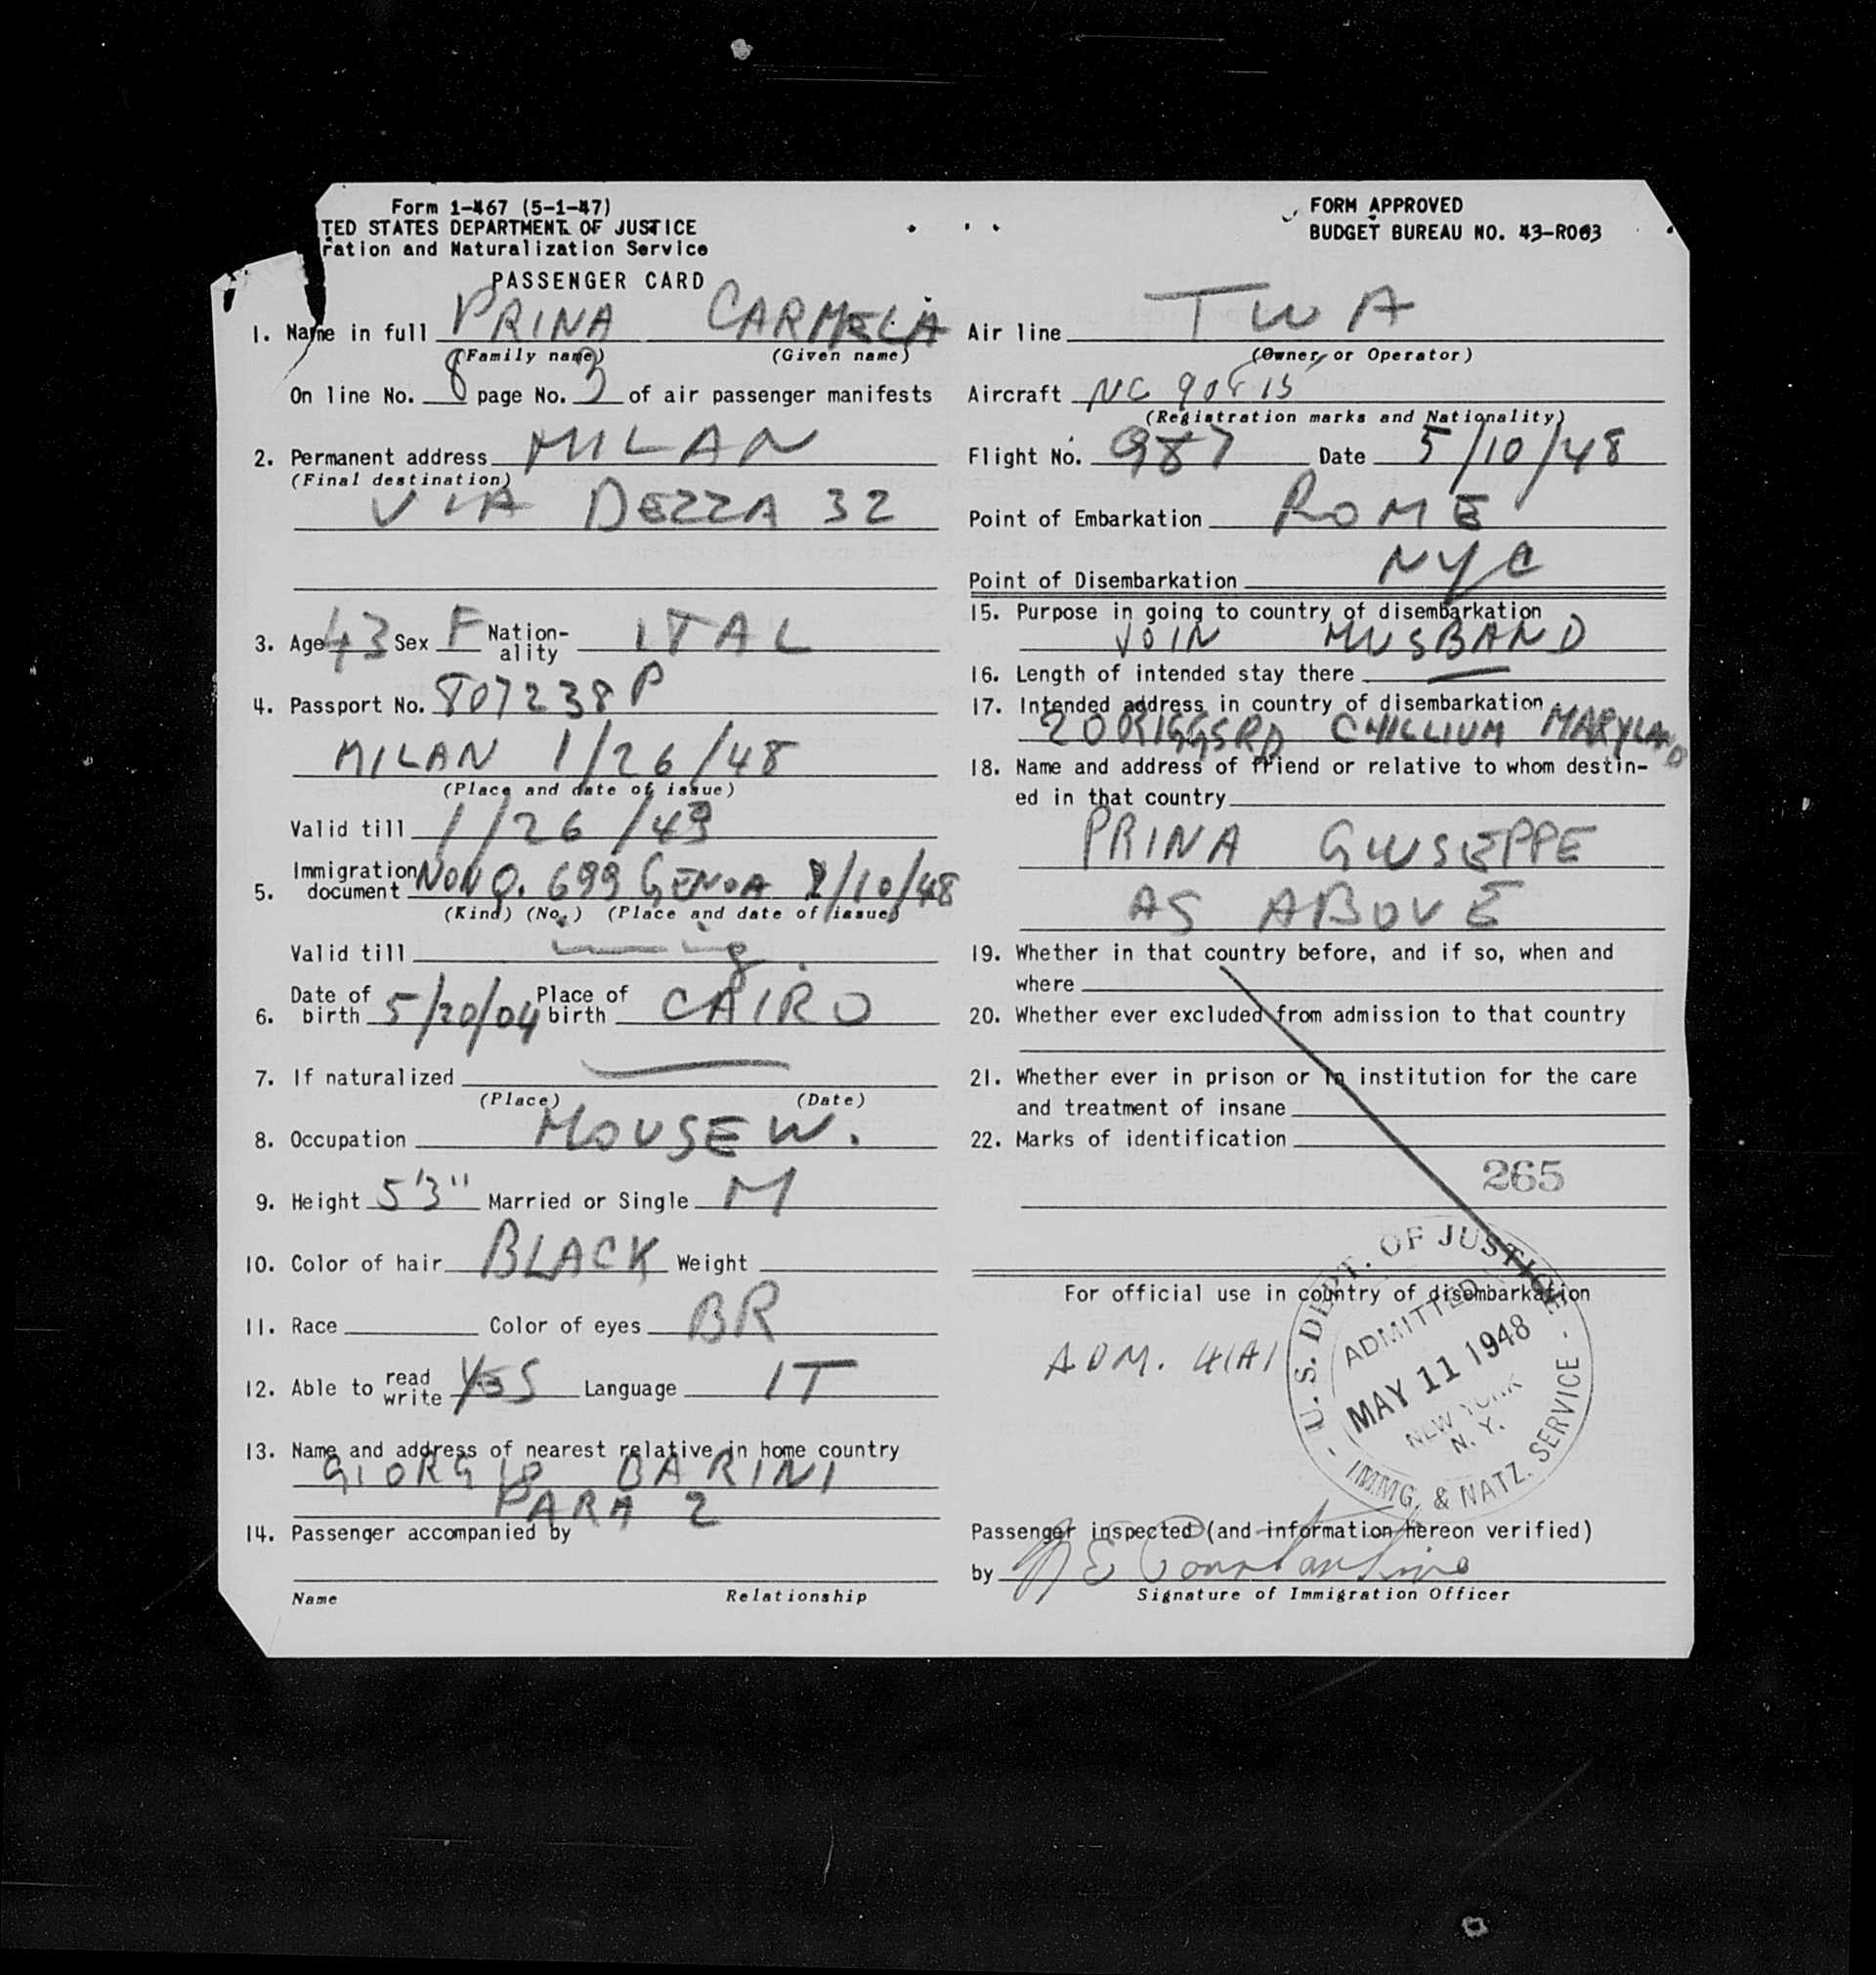 Form 1-467 (5-1-47)
TED STATES DEPARTMENT OF JUSTICE
ration and Naturalization Service
PASSENGER CARD
FORM APPROVED
BUDGET BUREAU NO. 43-R063
1. Name in full PRINA CARMELA
(Family name) (Given name)
On line No. 8 page No. 3 of air passenger manifests
2. Permanent address MILAN
(Final destination)
VIA DEZZA 32
3. Age 43 Sex F Nation-ality ITAL
4. Passport No. 807238 P
MILAN 1/26/48
(Place and date of issue)
Valid till 1/26/49
5. Immigration document NON Q. 699 GENOA /10/48
(Kind) (No.) (Place and date of issue)
Valid till
6. Date of birth 5/20/04 Place of birth CAIRO
7. If naturalized
(Place) (Date)
8. Occupation HOUSE W.
9. Height 5'3" Married or Single M
10. Color of hair BLACK Weight
11. Race Color of eyes BR
12. Able to read write YES Language IT
13. Name and address of nearest relative in home country
GIORGIO BARINI
PARA 2
14. Passenger accompanied by
Name Relationship
Air line TWA
(Owner, or Operator)
Aircraft NC 90815
(Registration marks and Nationality)
Flight No. 987 Date 5/10/48
Point of Embarkation ROME
Point of Disembarkation NYC
15. Purpose in going to country of disembarkation
JOIN HUSBAND
16. Length of intended stay there —
17. Intended address in country of disembarkation
20 RIGGS RD CHILLIUM MARYLAND
18. Name and address of friend or relative to whom destin-
ed in that country
PRINA GIUSEPPE
AS ABOVE
19. Whether in that country before, and if so, when and
where
20. Whether ever excluded from admission to that country
21. Whether ever in prison or in institution for the care
and treatment of insane
22. Marks of identification
265
For official use in country of disembarkation
ADM. 4(A)
U.S. DEPT. OF JUSTICE
ADMITTED
MAY 11 1948
NEW YORK
N. Y.
IMMG. & NATZ. SERVICE
Passenger inspected (and information hereon verified)
by
Signature of Immigration Officer